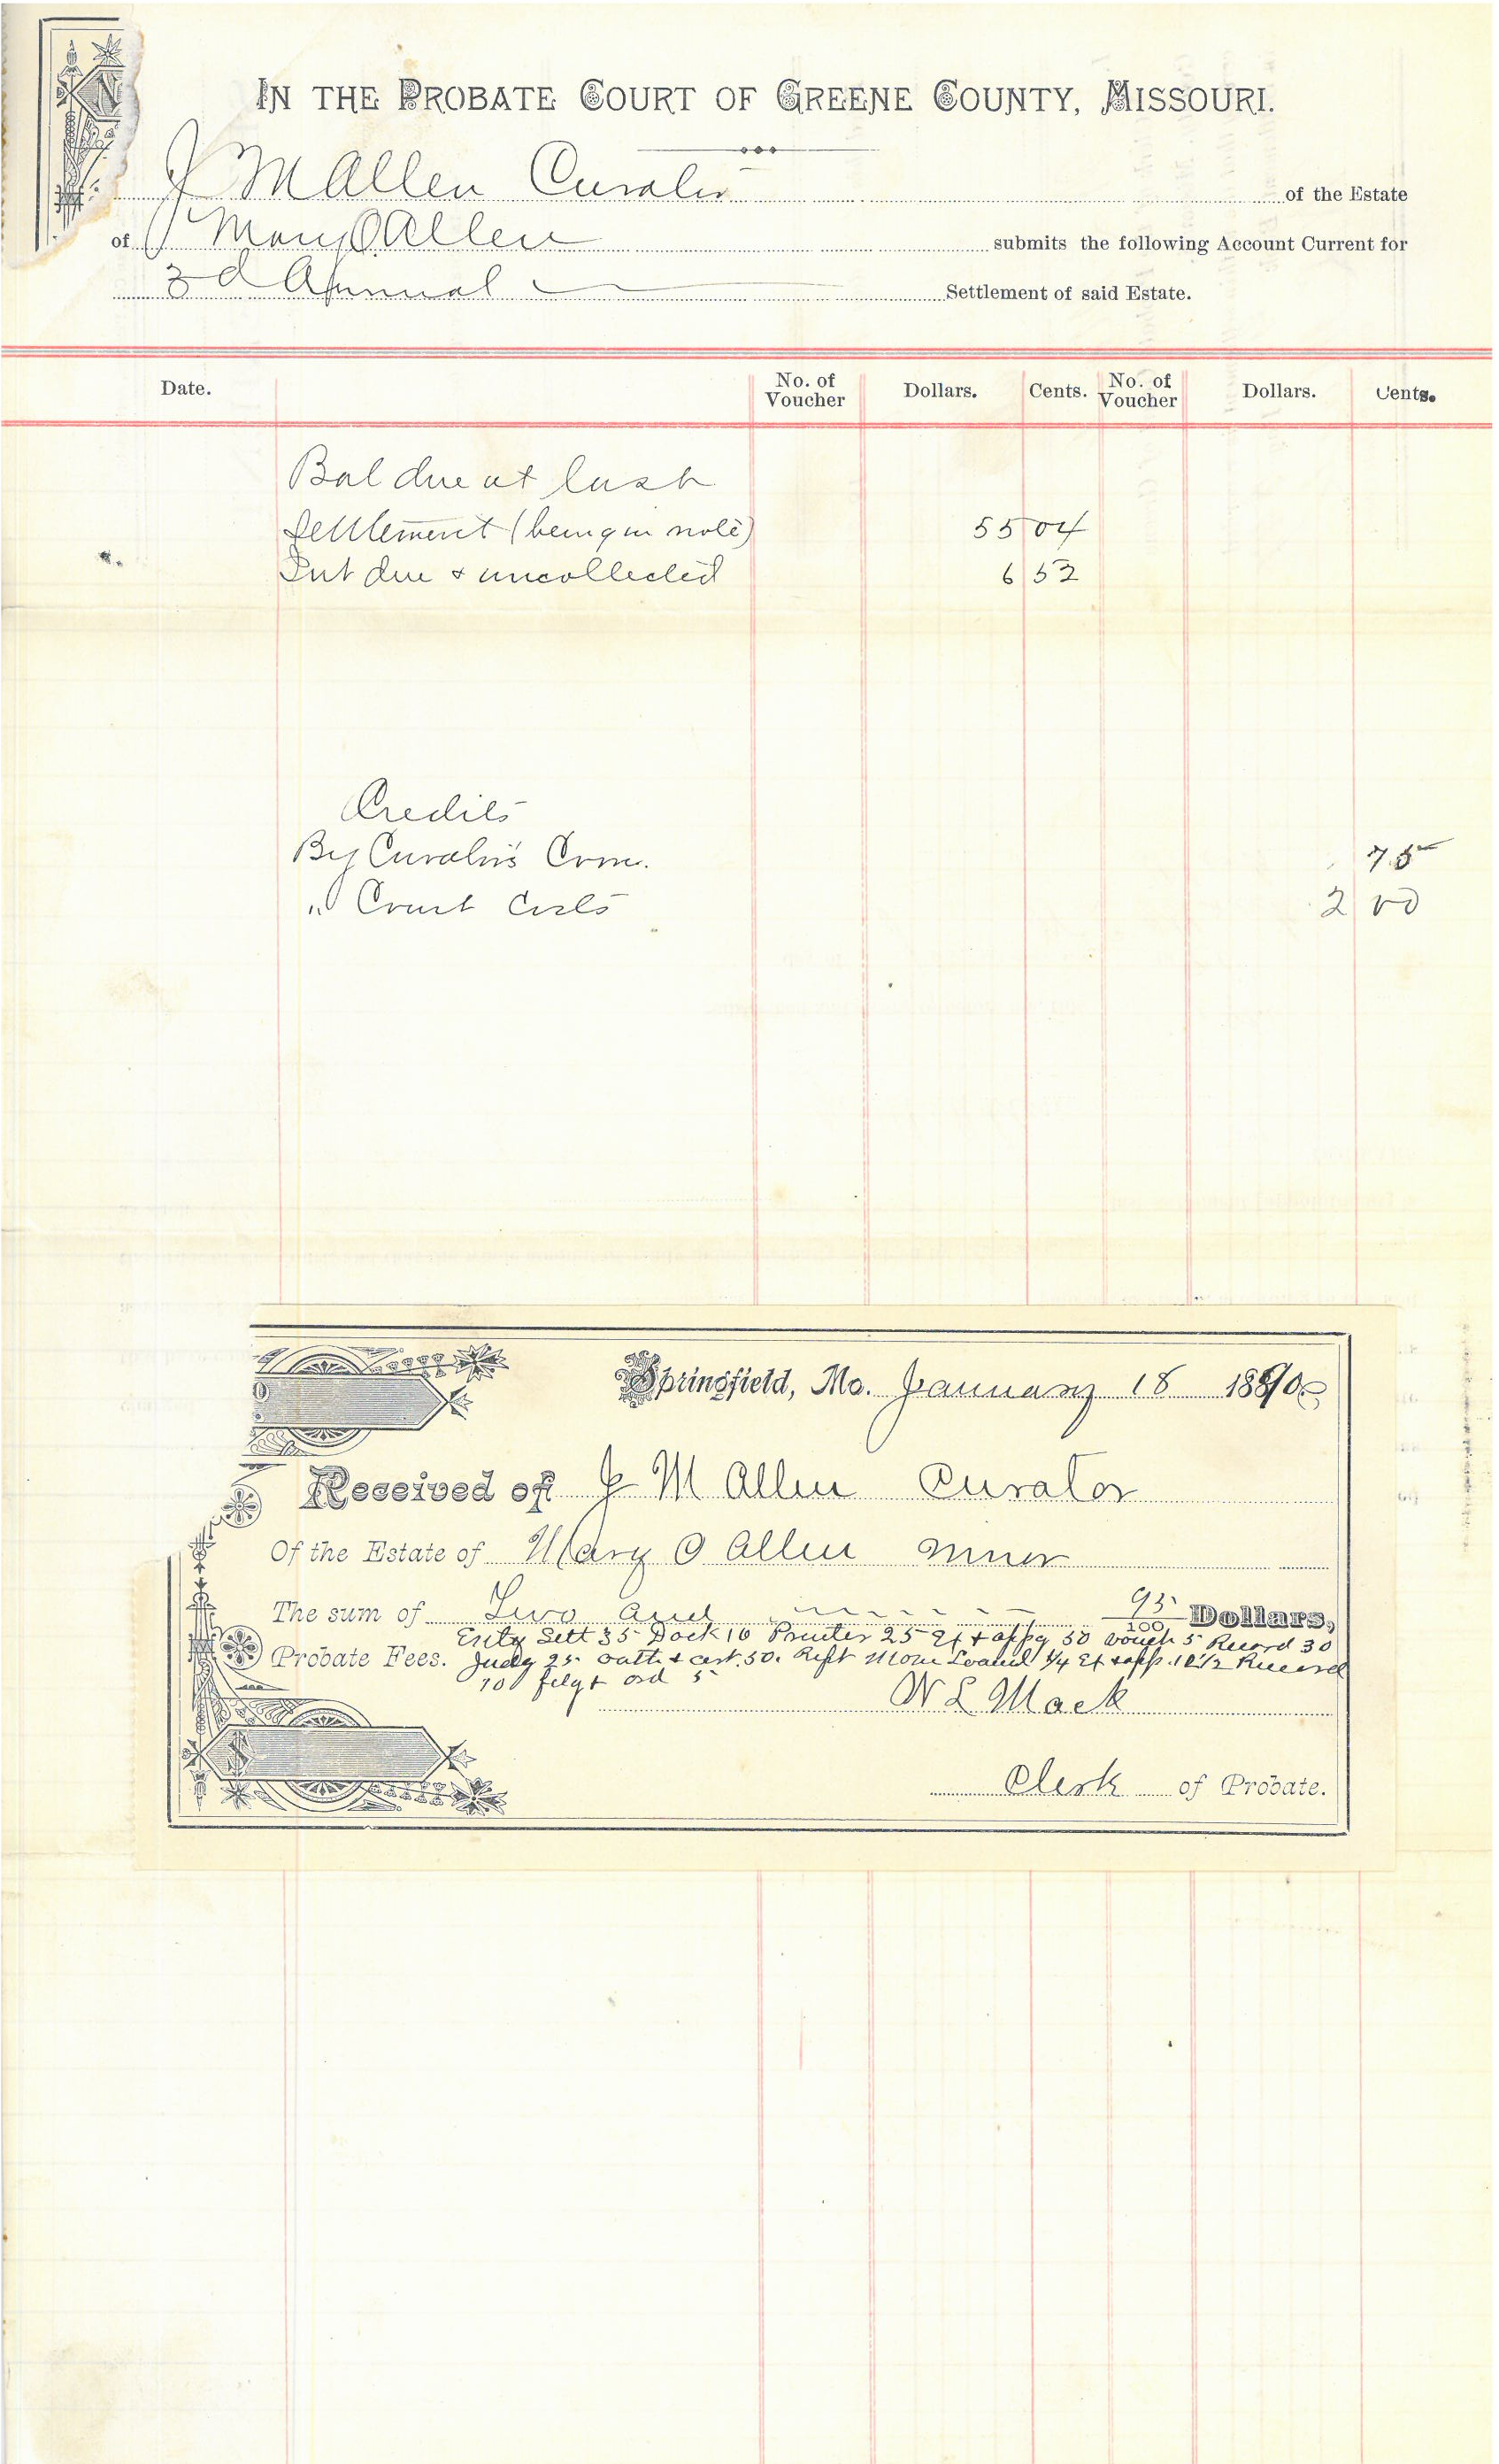 IN THE PROBATE COURT OF GREENE COUNTY, MISSOURI.
J M Allen Curator of the Estate
of Mary O Allen submits the following Account Current for
3d Annual Settlement of said Estate.
Date. No. of Voucher Dollars. Cents. No. of Voucher Dollars. Cents.
Bal due at last
Settlement (being in note) 55 04
Int due & uncollected 6 53
Credits
By Curator's Com. 75
" Court Costs 2 00
Springfield, Mo. January 18 1890
Received of J M Allen Curator
Of the Estate of Mary O Allen minor
The sum of Two and 95/100 Dollars,
Entg Sett 35 Dock 10 Printer 25 Ex & appg 50 Vouch 5 Record 30
Probate Fees. Judg 25 oath & cert. 50. Rept Mone Loaned 1/4 Ex & app. 12 1/2 Record
10 filg & ord 5
W L Mack
Clerk of Probate.